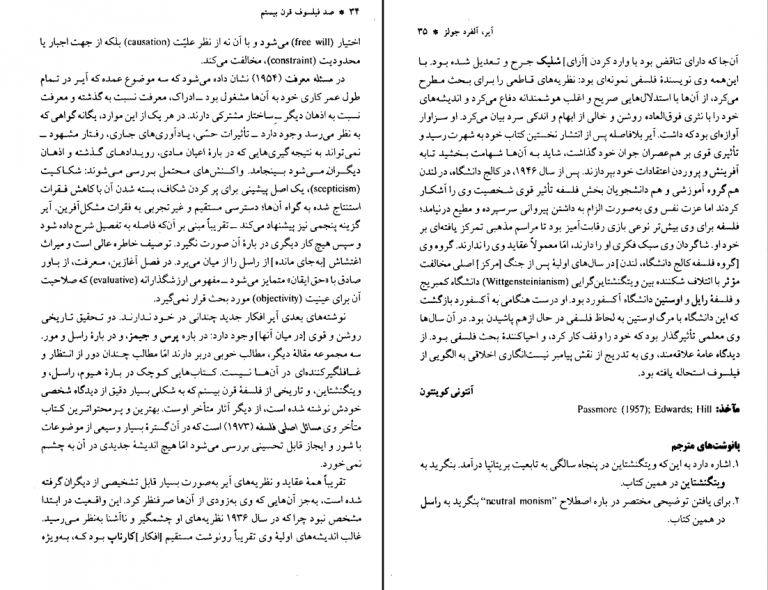 ۳۴ * صد فیلسوف قرن بیستم
اختیار (free will) می‌شود و با آن نه از نظر علیّت (causation) بلکه از جهت اجبار یا
محدودیت (constraint)، مخالفت می‌کند.
در مسئله معرفت (۱۹۵۴) نشان داده می‌شود که سه موضوع عمده که آیر در تمام
طول عمر کاری خود به آن‌ها مشغول بود ــ ادراک، معرفت نسبت به گذشته و معرفت
نسبت به اذهان دیگر ــ ساختار مشترکی دارند. در هر یک از این موارد، یگانه گواهی که
به نظر می‌رسد وجود دارد ــ تأثیرات حسّی، یادآوری‌های جاری، رفتار مشهود ــ
نمی‌تواند به نتیجه گیری‌هایی که در بارهٔ اعیان مادی، رویدادهای گذشته و اذهان
دیگران می‌شود بینجامد. واکنش‌های محتمل بررسی می‌شوند: شکاکیت
(scepticism)، یک اصل پیشینی برای پر کردن شکاف، بسته شدن آن با کاهش فقرات
استنتاج شده به گواه آن‌ها؛ دسترسی مستقیم و غیرتجربی به فقرات مشکل‌آفرین. آیر
گزینه پنجمی نیز پیشنهاد می‌کند ــ تقریباً مبنی بر آن‌که فاصله به تفصیل شرح داده شود
و سپس هیچ کار دیگری در بارهٔ آن صورت نگیرد. توصیف خاطره عالی است و میراث
اغتشاش [به‌جای مانده] از راسل را از میان می‌برد. در فصل آغازین، معرفت، از باور
صادق با «حق ایقان» متمایز می‌شود ــ مفهومی ارزشگذارانه (evaluative) که صلاحیت
آن برای عینیت (objectivity) مورد بحث قرار نمی‌گیرد.
نوشته‌های بعدی آیر افکار جدید چندانی در خود ندارند. دو تحقیق تاریخی
روشن و قوی [در میان آنها] وجود دارد: در باره پرس و جیمز، و در بارهٔ راسل و مور.
سه مجموعه مقالهٔ دیگر، مطالب خوبی دربر دارند امّا مطالب چندان دور از انتظار و
غافلگیرکننده‌ای در آن‌ها نیست. کتاب‌هایی کوچک در بارهٔ هیوم، راسل، و
ویتگنشتاین، و تاریخی از فلسفهٔ قرن بیستم که به شکلی بسیار دقیق از دیدگاه شخصی
خودش نوشته شده است، از دیگر آثار متأخر اوست. بهترین و پرمحتواترین کتاب
متأخر وی مسائل اصلی فلسفه (۱۹۷۳) است که در آن گسترهٔ بسیار وسیعی از موضوعات
با شور و ایجاز قابل تحسینی بررسی می‌شود امّا هیچ اندیشهٔ جدیدی در آن به چشم
نمی‌خورد.
تقریباً همهٔ عقاید و نظریه‌های آیر به‌صورت بسیار قابل تشخیصی از دیگران گرفته
شده است، به‌جز آن‌هایی که وی به‌زودی از آن‌ها صرفنظر کرد. این واقعیت در ابتدا
مشخص نبود چرا که در سال ۱۹۳۶ نظریه‌های او چشمگیر و ناآشنا به‌نظر می‌رسید.
غالب اندیشه‌های اولیهٔ وی تقریباً رونوشت مستقیم [افکار] کارناپ بود که، به‌ویژه
آیر، آلفرد جولز * ۳۵
آن‌جا که دارای تناقض بود با وارد کردن [آرای] شلیک جرح و تعدیل شده بود. با
این‌همه وی نویسندهٔ فلسفی نمونه‌ای بود: نظریه‌های قاطعی را برای بحث مطرح
می‌کرد، از آن‌ها با استدلال‌هایی صریح و اغلب هوشمندانه دفاع می‌کرد و اندیشه‌های
خود را با نثری فوق‌العاده روشن و خالی از ابهام و اندکی سرد بیان می‌کرد. او سزاوار
آوازه‌ای بود که داشت. آیر بلافاصله پس از انتشار نخستین کتاب خود به شهرت رسید و
تأثیری قوی بر هم‌عصران جوان خود گذاشت، شاید به آن‌ها شهامت بخشید تا به
آفرینش و پروردن اعتقادات خود بپردازند. پس از سال ۱۹۴۶، در کالج دانشگاه، در لندن
هم گروه آموزشی و هم دانشجویان بخش فلسفه تأثیر قوی شخصیت وی را آشکار
کردند اما عزت نفس وی به‌صورت الزام به داشتن پیروانی سرسپرده و مطیع درنیامد؛
فلسفه برای وی بیش‌تر نوعی بازی رقابت‌آمیز بود تا مراسم مذهبی تمرکز یافته‌ای بر
خود او. شاگردان وی سبک فکری او را دارند، امّا معمولاً عقاید وی را ندارند. گروه وی
[گروه فلسفه کالج دانشگاه، لندن] در سال‌های اولیهٔ پس از جنگ [مرکز] اصلی مخالفت
مؤثر با ائتلاف شکننده بین ویتگنشتاین‌گرایی (Wittgensteinianism) دانشگاه کمبریج
و فلسفهٔ رایل و اوستین دانشگاه آکسفورد بود. او درست هنگامی به آکسفورد بازگشت
که این دانشگاه با مرگ اوستین به لحاظ فلسفی در حال ازهم پاشیدن بود. در آن سال‌ها
وی معلمی تأثیرگذار بود که خود را وقف کار کرد، و احیاکنندهٔ بحث فلسفی بود. از
دیدگاه عامهٔ علاقه‌مند، وی به تدریج از نقش پیامبر نیست‌انگاری اخلاقی به الگویی از
فیلسوف استحاله یافته بود.
آنتونی کوینتون
مآخذ: Passmore (1957); Edwards; Hill
پانوشت‌های مترجم
۱. اشاره دارد به این‌که ویتگنشتاین در پنجاه سالگی به تابعیت بریتانیا درآمد. بنگرید به
ویتگنشتاین در همین کتاب.
۲. برای یافتن توضیحی مختصر در باره اصطلاح “neutral monism” بنگرید به راسل
در همین کتاب.